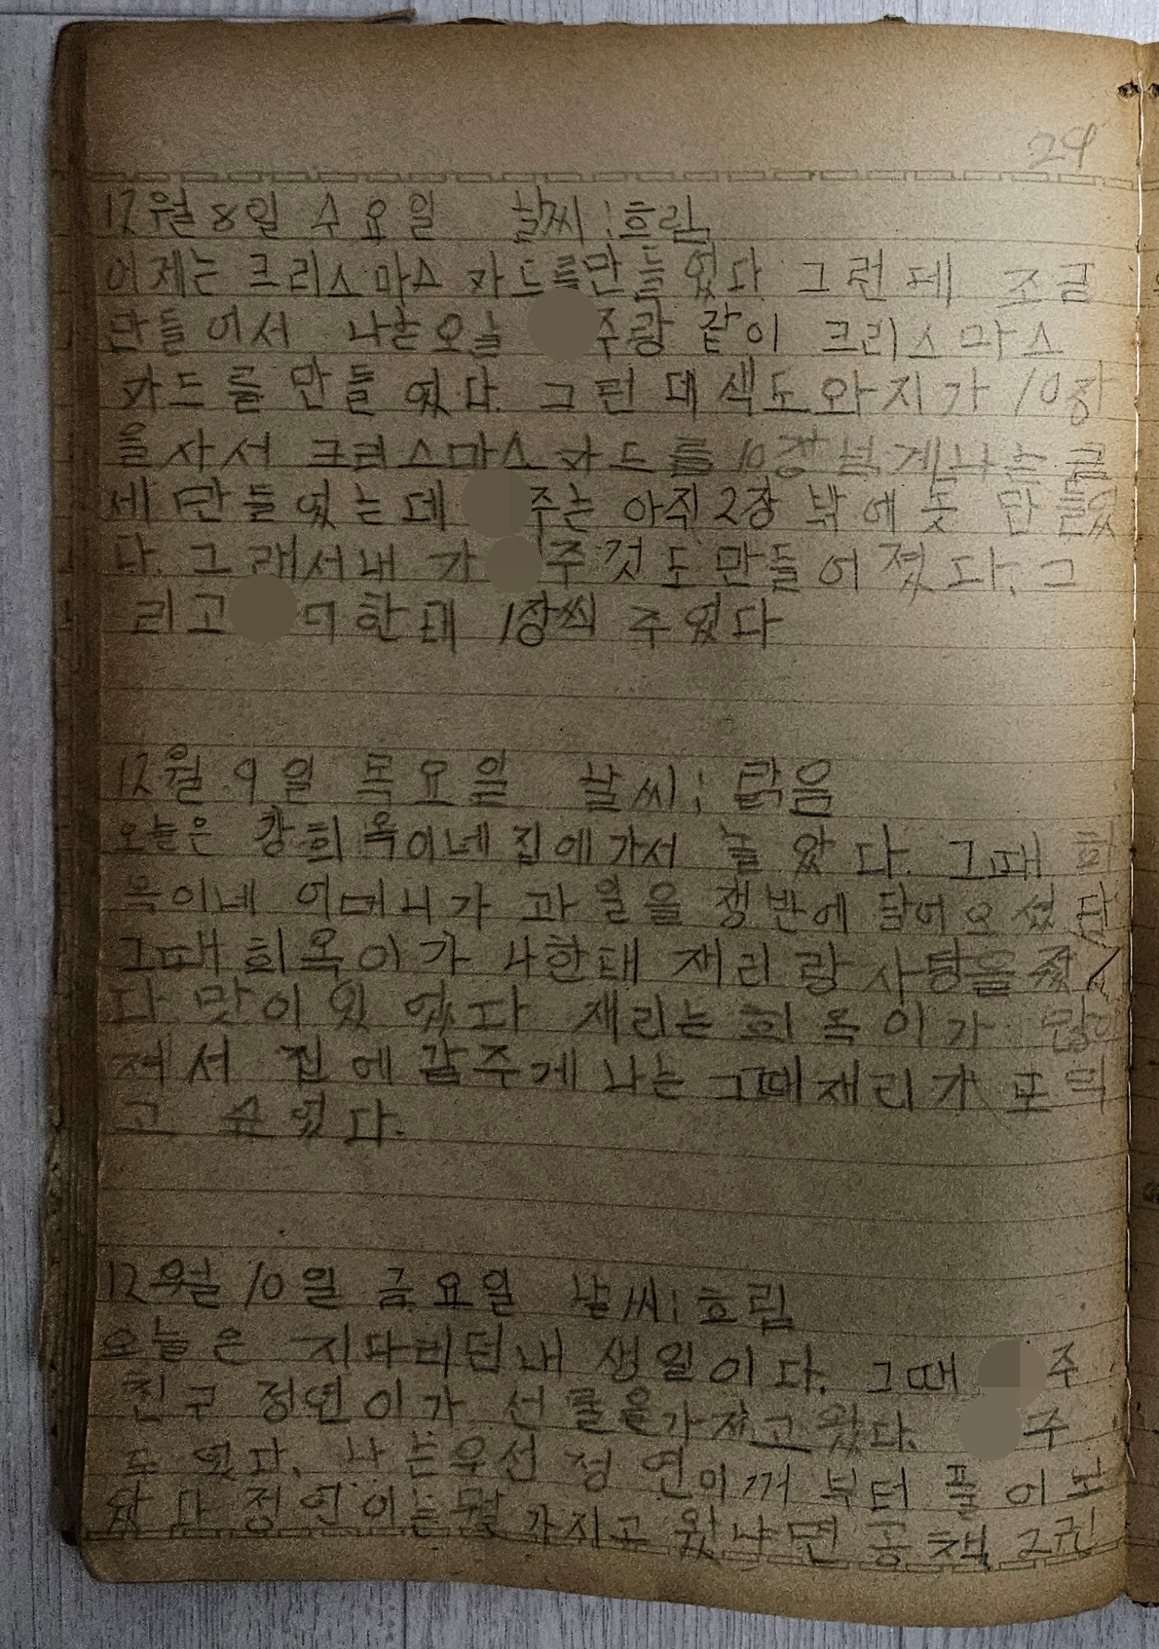 24
12월 8일 수요일 날씨:흐림
어제는 크리스마스 카드를만들었다 그런데 조금
만들어서 나는오늘 주랑 같이 크리스마스
카드를 만들었다. 그런대색도화지가 10장
을사서 크리스마스카드를10장넘게나는
세만들었는데 주는 아직2장 밖에못 만들었
다. 그래서내가 주것도만들어졌다. 그
리고 한태 1장씩 주었다
12월 9일 목요일 날씨: 맑음
오늘은 강희옥이네집에가서 놀았다. 그때 희
옥이네 어머니가 과일을 쟁반에 담어오셨단
그때희옥이가 나한태 재리랑사탕을줬
다 맛이있었다 재리는희옥이가 많이
저서 집에갈주게 나는그때재리가 또먹
고 싶었다.
12월 10일 금요일 날씨:흐림
오늘은 지다리던내 생일이다. 그때 주
친구 정연이가 선물을가져고왔다. 주
도 였다. 나는우선 정연이꺼부터 풀어보
았다 정연이는뭘가지고 왔냐면 공책 2권